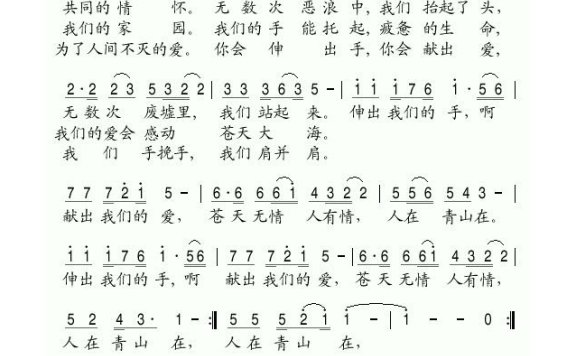 共同的情 怀。 无 数 次 恶 浪 中, 我们 抬起 了 头,
我们的家 园。 我们的 手 能 托 起, 疲惫 的 生 命,
为了人间不灭的爱。 你会 伸 出 手, 你会 献出 爱,
2·2 2 3 5 3 2 2 | 3 3 3 6 3 5 - | 1 1 1 7 6 1· 5 6 |
无 数 次 废墟里, 我们 站起 来。 伸出 我们的 手, 啊
我们的爱会 感动 苍天大 海。
我 们 手挽手, 我们 肩并 肩。
7 7 7 2 1 5 - | 6·6 6 6 1 4 3 2 2 | 5 5 6 5 4 3 - |
献出 我们的 爱, 苍 天 无情 人有情, 人在 青山在。
1 1 1 7 6 1· 5 6 | 7 7 7 2 1 5 - | 6·6 6 6 1 4 3 2 2 |
伸出 我们的 手, 啊 献出 我们的 爱, 苍 天 无情 人有情,
5 2 4 3· 1 - :| 5 5 5 2 1 1 - | 1 - - 0 :|
人 在 青 山 在, 人 在 青山 在,